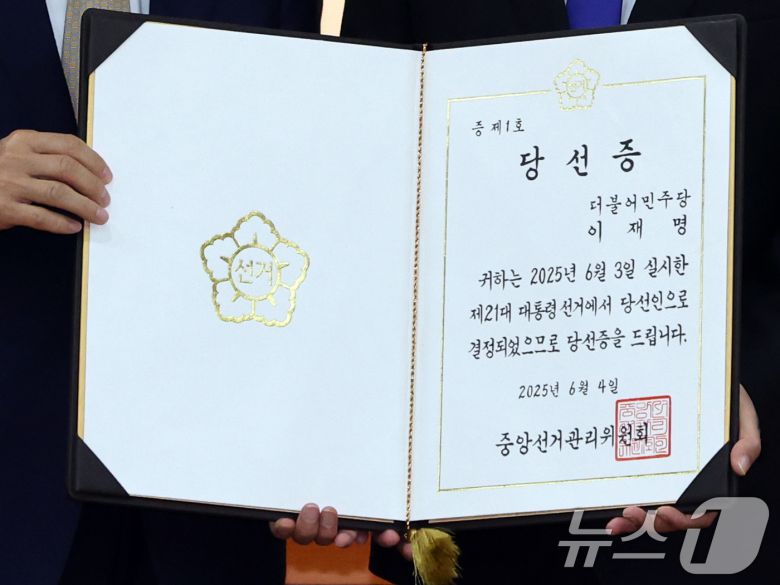 선거
증 제1호
당 선 증
더불어민주당
이 재 명
귀하는 2025년 6월 3일 실시한
제21대 대통령선거에서 당선인으로
결정되었으므로 당선증을 드립니다.
2025년 6월 4일
중앙선거관리위원회
뉴스1